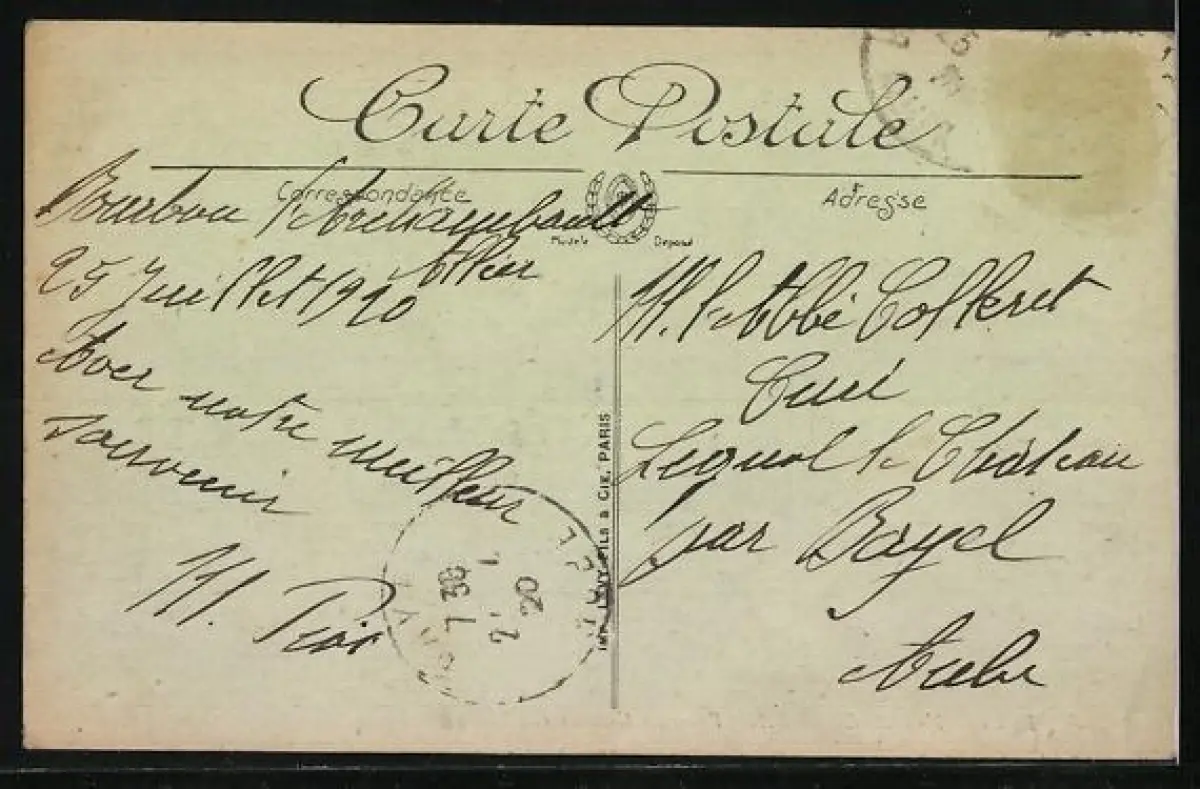 Carte Postale
Correspondance
Adresse
Modèle Déposé
Bourbon l'Archambault
Allier
25 Juillet 1920
Avec notre meilleur
souvenir
M.
IMP. LEVY FILS & CIE, PARIS
M. l'Abbé
Curé
Lignol le Château
par Bayel
Aube
7 30
20